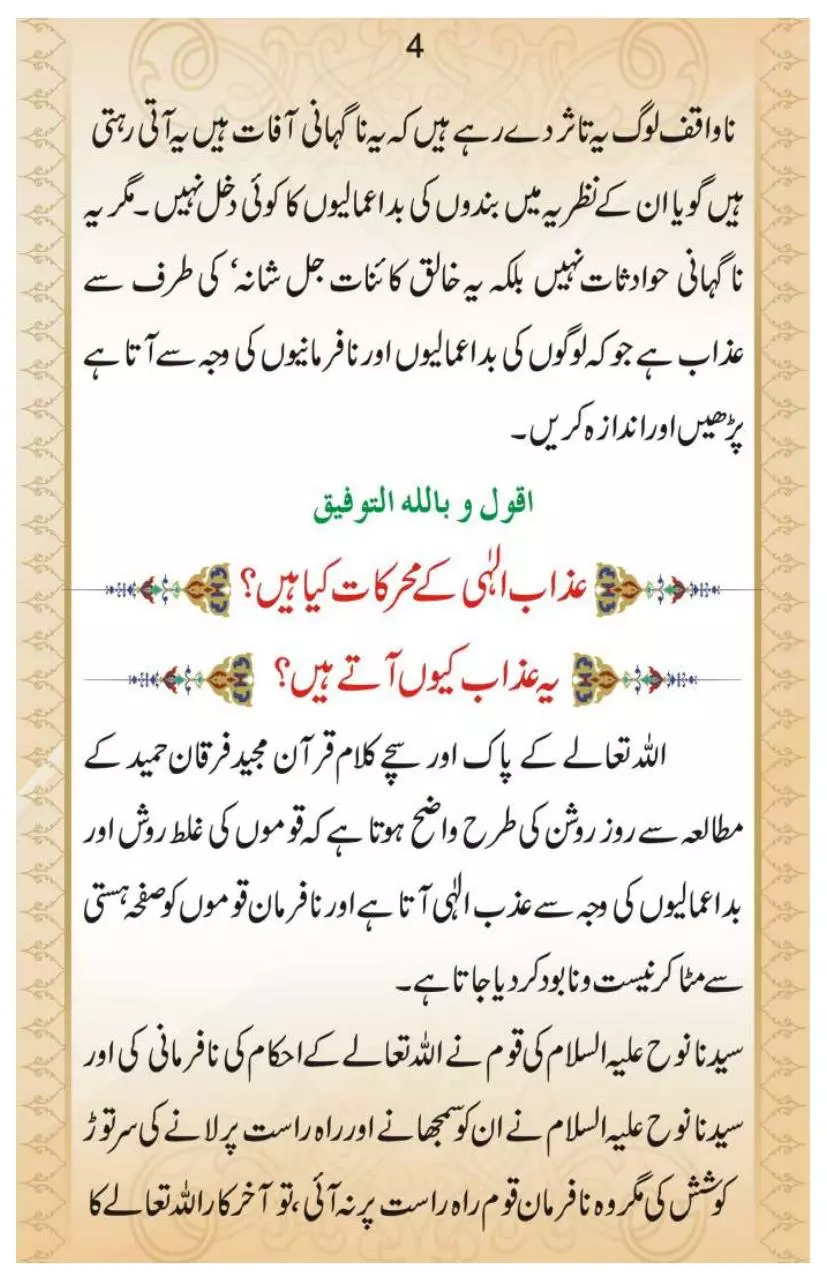 4
ناواقف لوگ یہ تاثر دے رہے ہیں کہ یہ ناگہانی آفات ہیں یہ آتی رہتی
ہیں گویا ان کے نظریہ میں بندوں کی بداعمالیوں کا کوئی دخل نہیں۔ مگر یہ
ناگہانی حوادثات نہیں بلکہ یہ خالق کائنات جل شانہ‘ کی طرف سے
عذاب ہے جو کہ لوگوں کی بداعمالیوں اور نافرمانیوں کی وجہ سے آتا ہے
پڑھیں اور اندازہ کریں۔
اقول و بالله التوفیق
عذاب الٰہی کے محرکات کیا ہیں؟
یہ عذاب کیوں آتے ہیں؟
اللہ تعالےٰ کے پاک اور سچے کلام قرآن مجید فرقان حمید کے
مطالعہ سے روز روشن کی طرح واضح ہوتا ہے کہ قوموں کی غلط روش اور
بداعمالیوں کی وجہ سے عذب الٰہی آتا ہے اور نافرمان قوموں کو صفحہ ہستی
سے مٹا کر نیست و نابود کر دیا جاتا ہے۔
سیدنا نوح علیہ السلام کی قوم نے اللہ تعالےٰ کے احکام کی نافرمانی کی اور
سیدنا نوح علیہ السلام نے ان کو سمجھانے اور راہ راست پر لانے کی سر توڑ
کوشش کی مگر وہ نافرمان قوم راہ راست پر نہ آئی، تو آخر کار اللہ تعالےٰ کا